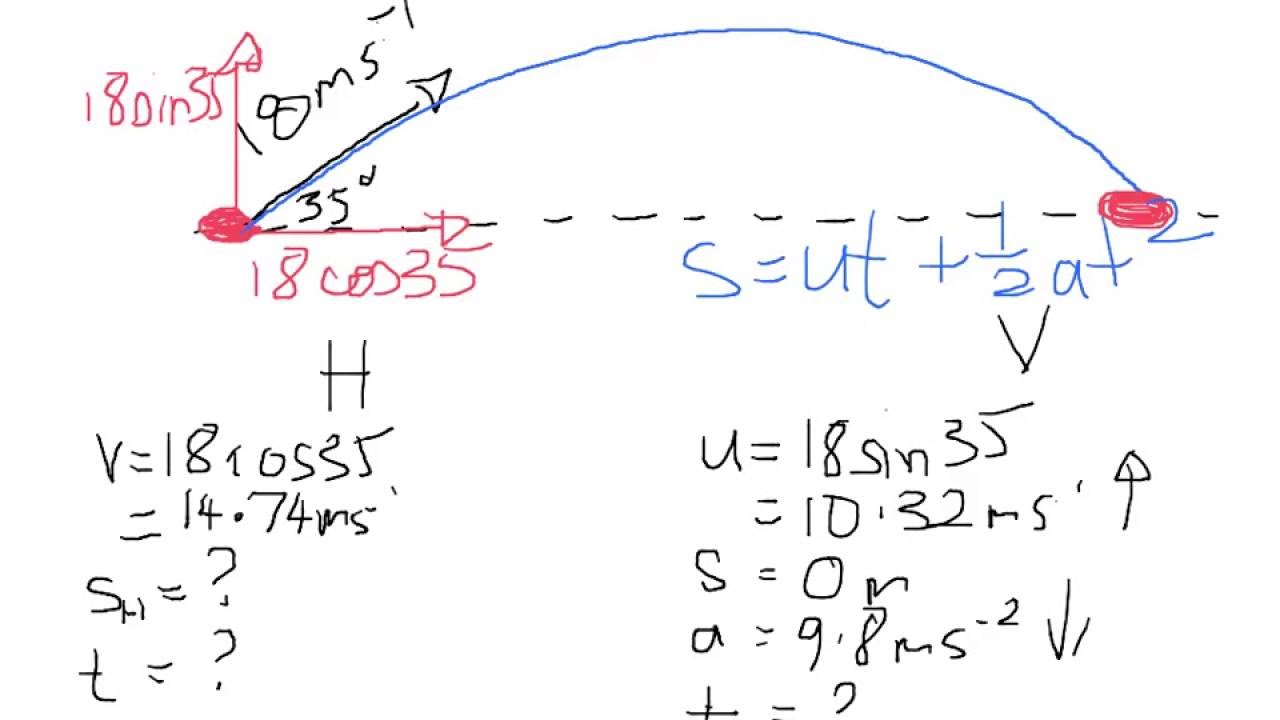 18ms⁻¹
18sin35
35°
18cos35
S=ut+½at²
H
V=18cos35
=14.74ms⁻¹
S_H=?
t=?
V
u=18sin35
=10.32ms⁻¹↑
S=0m
a=9.8ms⁻²↓
t=?